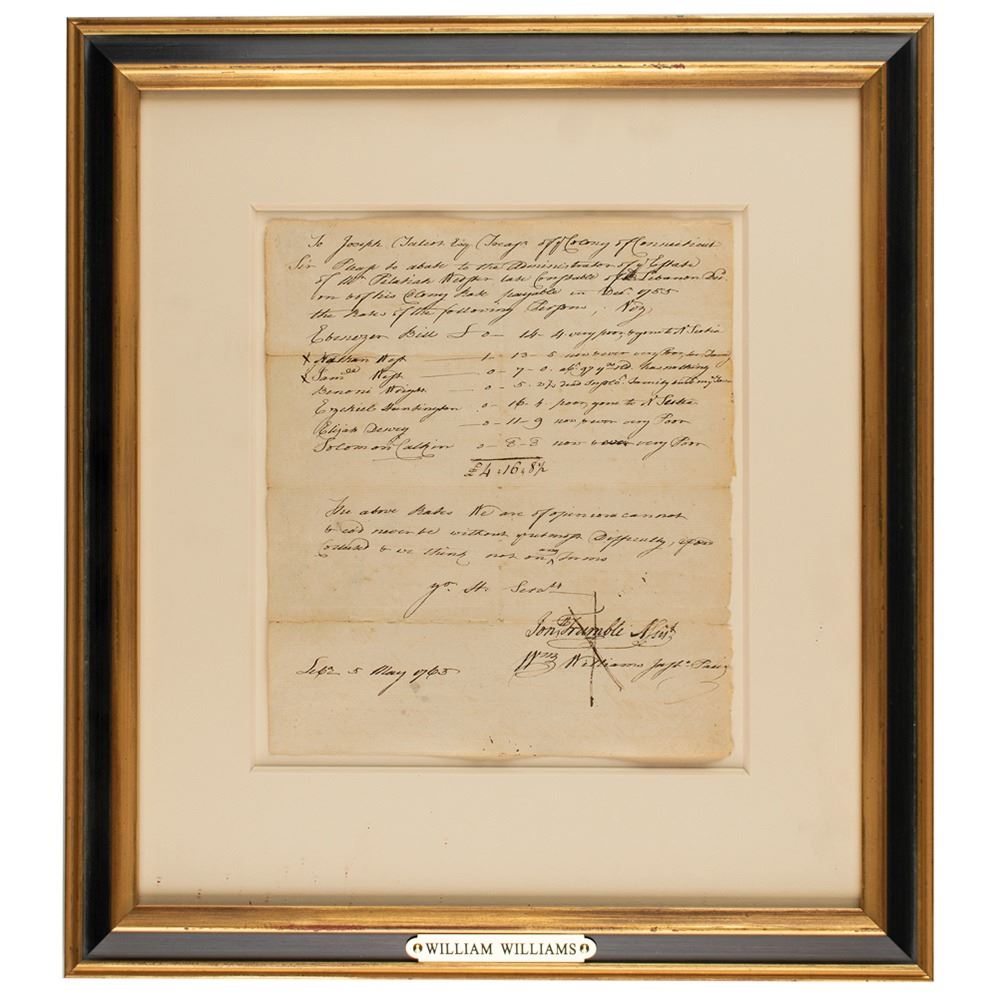 To Joseph Talcot Esq Treasr of ye Colony of Connecticut
Sir Please to abate to the Administrator of ye Estate
of Mr Pelatiah Webster late Constable of Lebanon
on this Colony Rate payable in Decr 1755
the Rates of the following Persons, Viz
Ebenezer Bill £ 0 - 14 - 4 very poor, & gone to N Scotia
x Nathan West 1 - 13 - 5 now & ever very Poor
x Samll West 0 - 7 - 0 has nothing
Benoni Wright 0 - 5 - 2½ dead Family
Ezekiel Huntington 0 - 16 - 4 poor, gone to N Scotia
Elijah Dewey 0 - 11 - 9 now & ever very Poor
Solomon Calkin 0 - 8 - 8 now & ever very Poor
£4 : 16 : 8½
The above Rates We are of opinion cannot
& cod never be without utmost Difficulty, if
Collected & we think not on any Terms
yr H Servts
Jonth Trumble Assist
Wm Williams Just Pacis
Lebn 5 May 1765
WILLIAM WILLIAMS